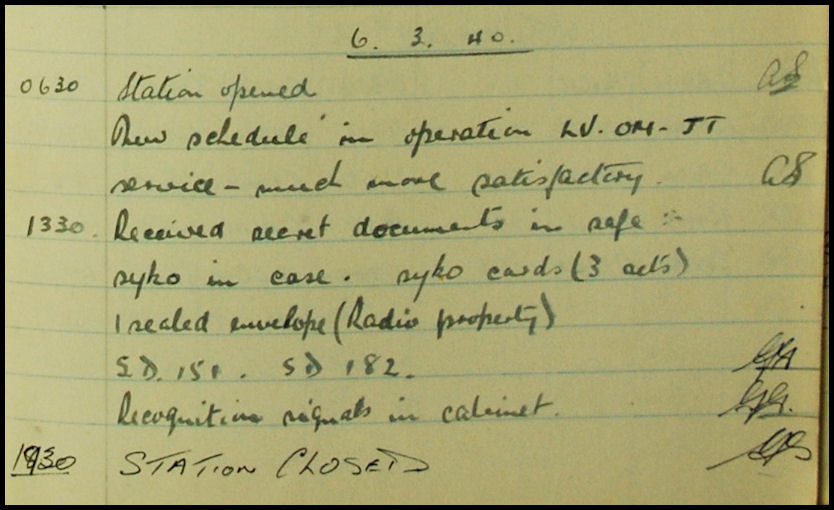 6. 3. 40.
0630 Station opened
New schedule in operation LV-OM-JT
service - much more satisfactory.
1330. Received secret documents in safe :-
syko in case. syko cards (3 sets)
1 sealed envelope (Radio property)
SD. 151. SD 182.
Recognition signals in cabinet.
1930 STATION CLOSED